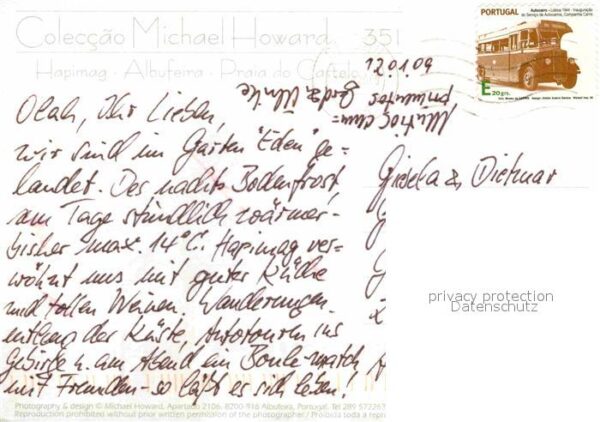 Colecção Michael Howard 351
Hapimag · Albufeira · Praia do Castelo
PORTUGAL
Autocarro - Lisboa 1944 - Inauguração
do Serviço de Autocarros, Companhia Carris
E 20 grs.
12.01.09
Olah, Ihr Lieben,
wir sind im Garten "Eden" ge-
landet. Des nachts Bodenfrost
am Tage stündlich wärmer-
bisher max. 14°C. Hapimag ver-
wöhnt uns mit guter Küche
und tollen Weinen. Wanderungen
entlang der Küste, Autotouren ins
Gebirge u. am Abend ein Boule-match
mit Freunden - so läßt es sich leben!
Gerd & Ulrike
Gisela & Dietmar
privacy protection
Datenschutz
Photography & design © Michael Howard, Apartado 2106, 8200-916 Albufeira, Portugal. Tel 289 572263
Reproduction prohibited without prior written permission of the photographer / Proibida toda a repr